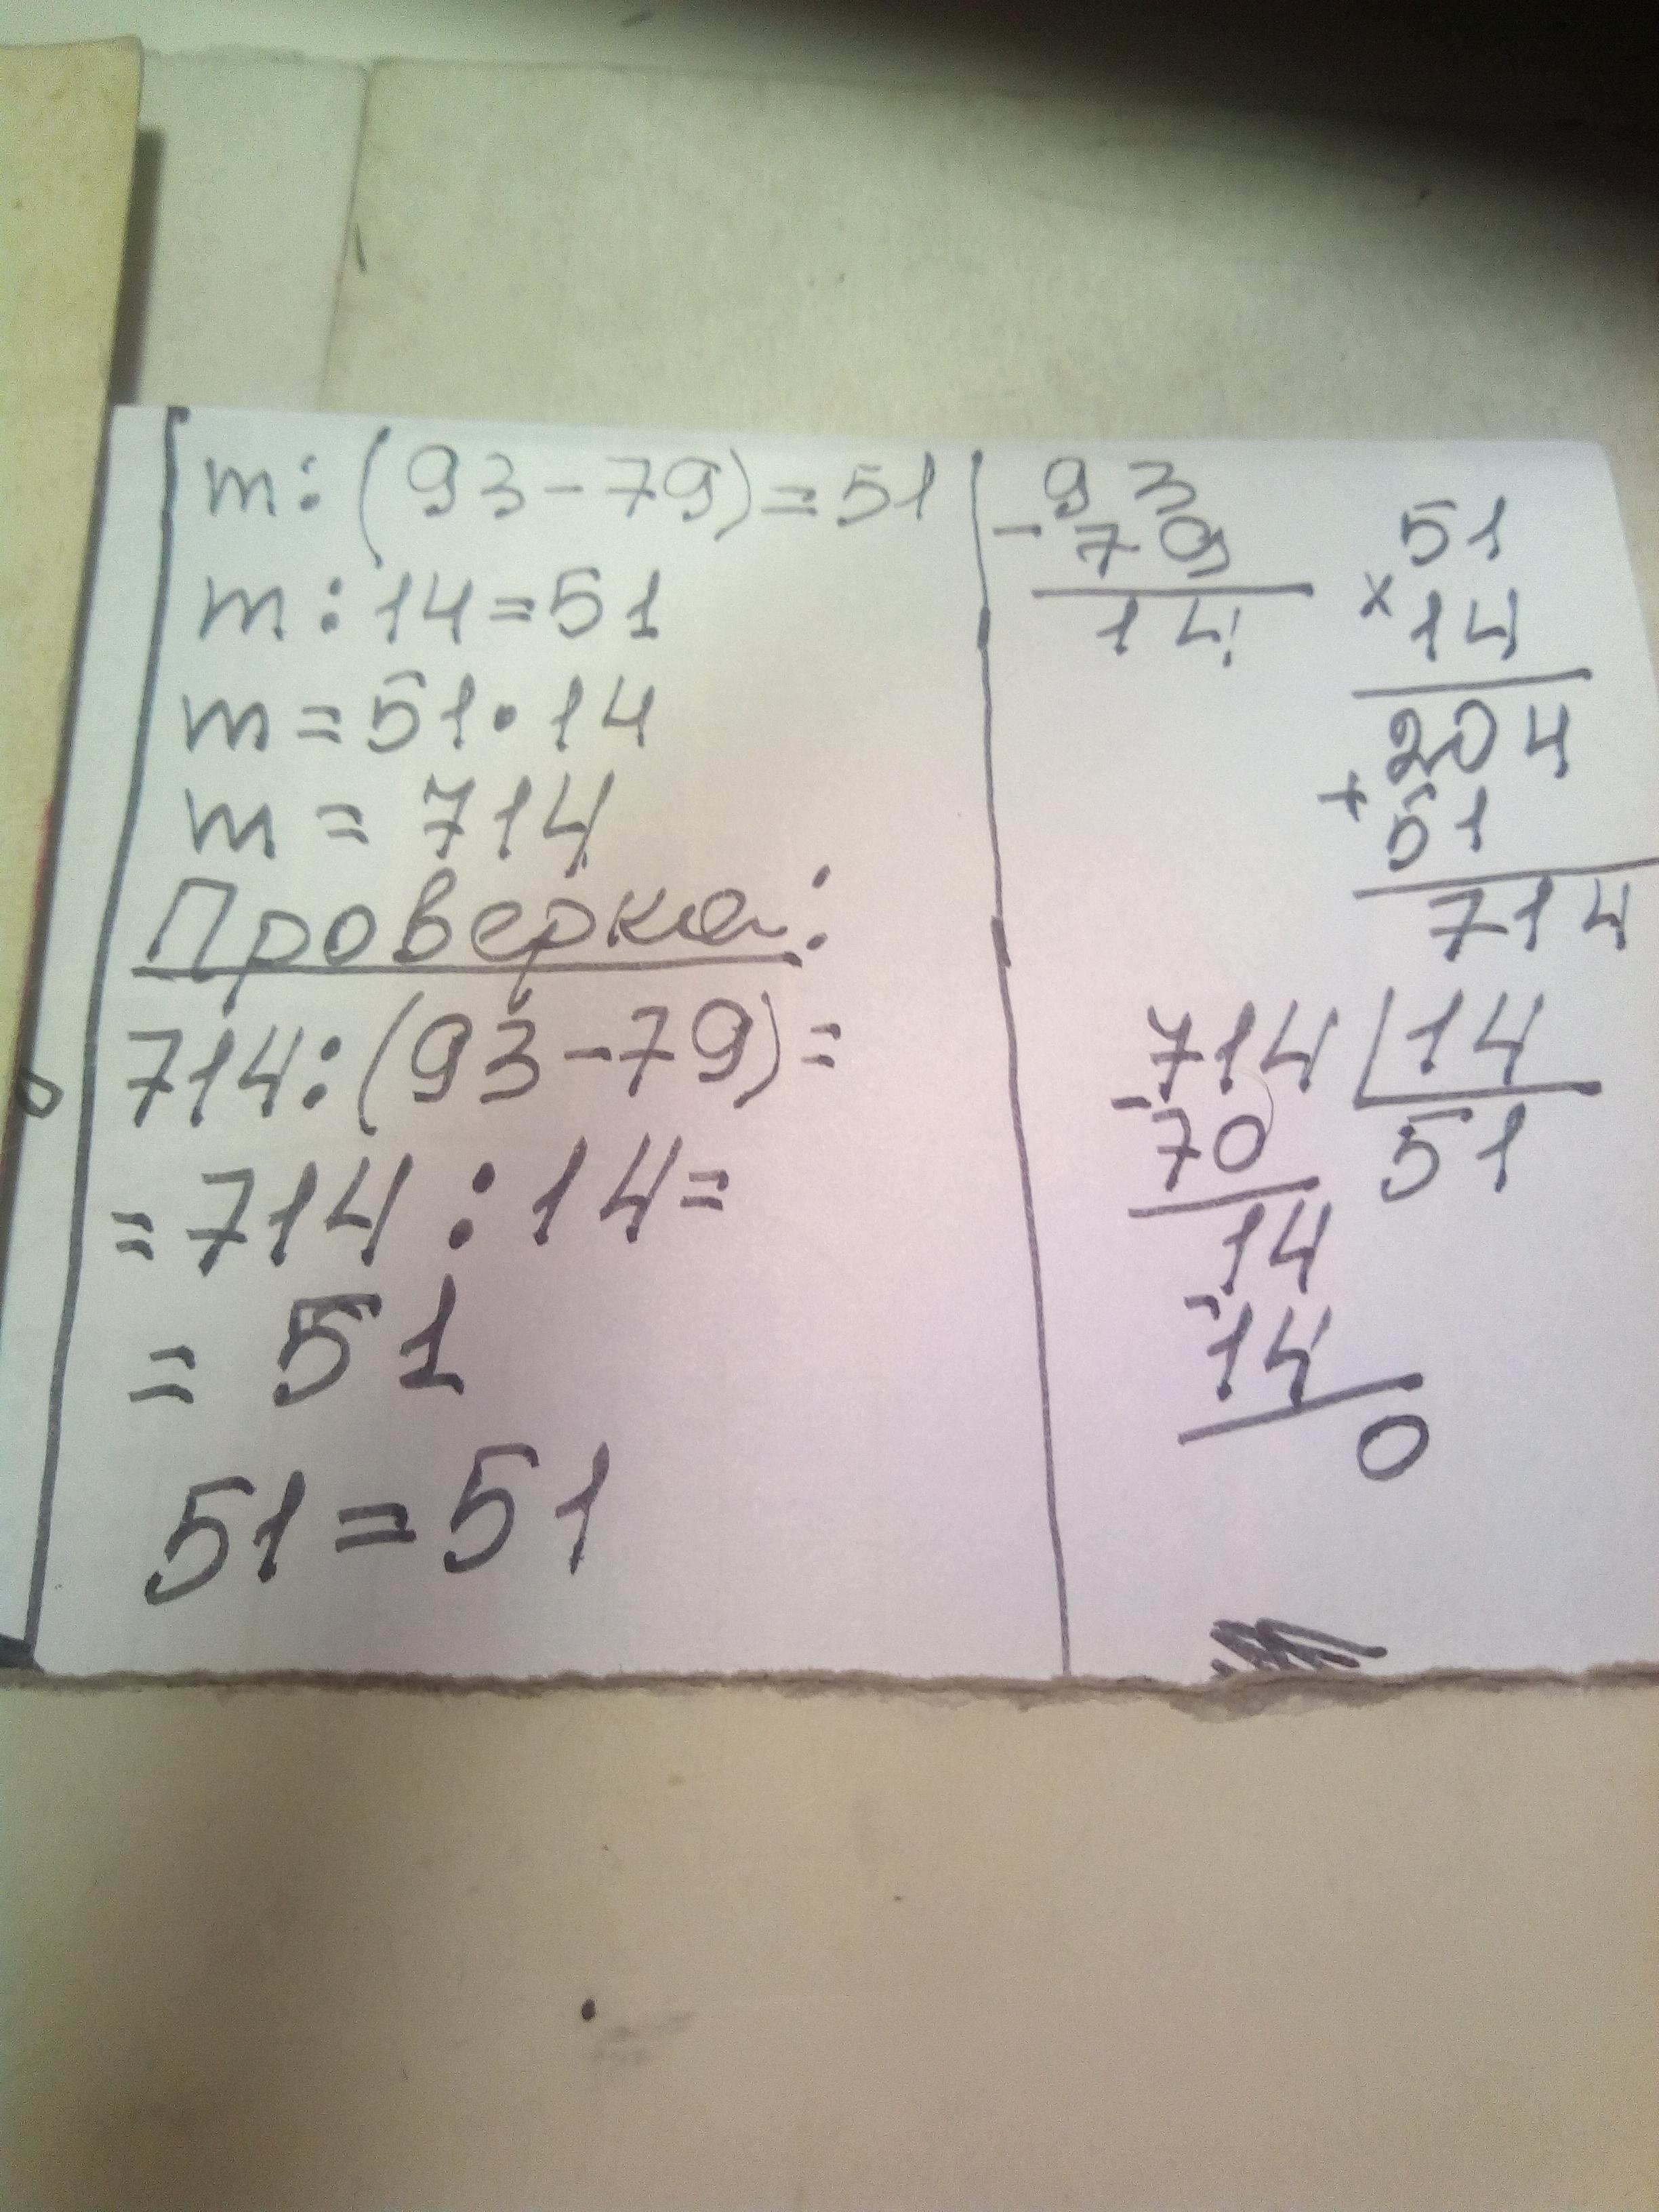 m : (93 - 79) = 51
m : 14 = 51
m = 51 · 14
m = 714
Проверка:
714 : (93 - 79) =
= 714 : 14 =
= 51
51 = 51
93
- 79
14
51
x 14
204
+ 51
714
714 | 14
- 70 51
14
- 14
0